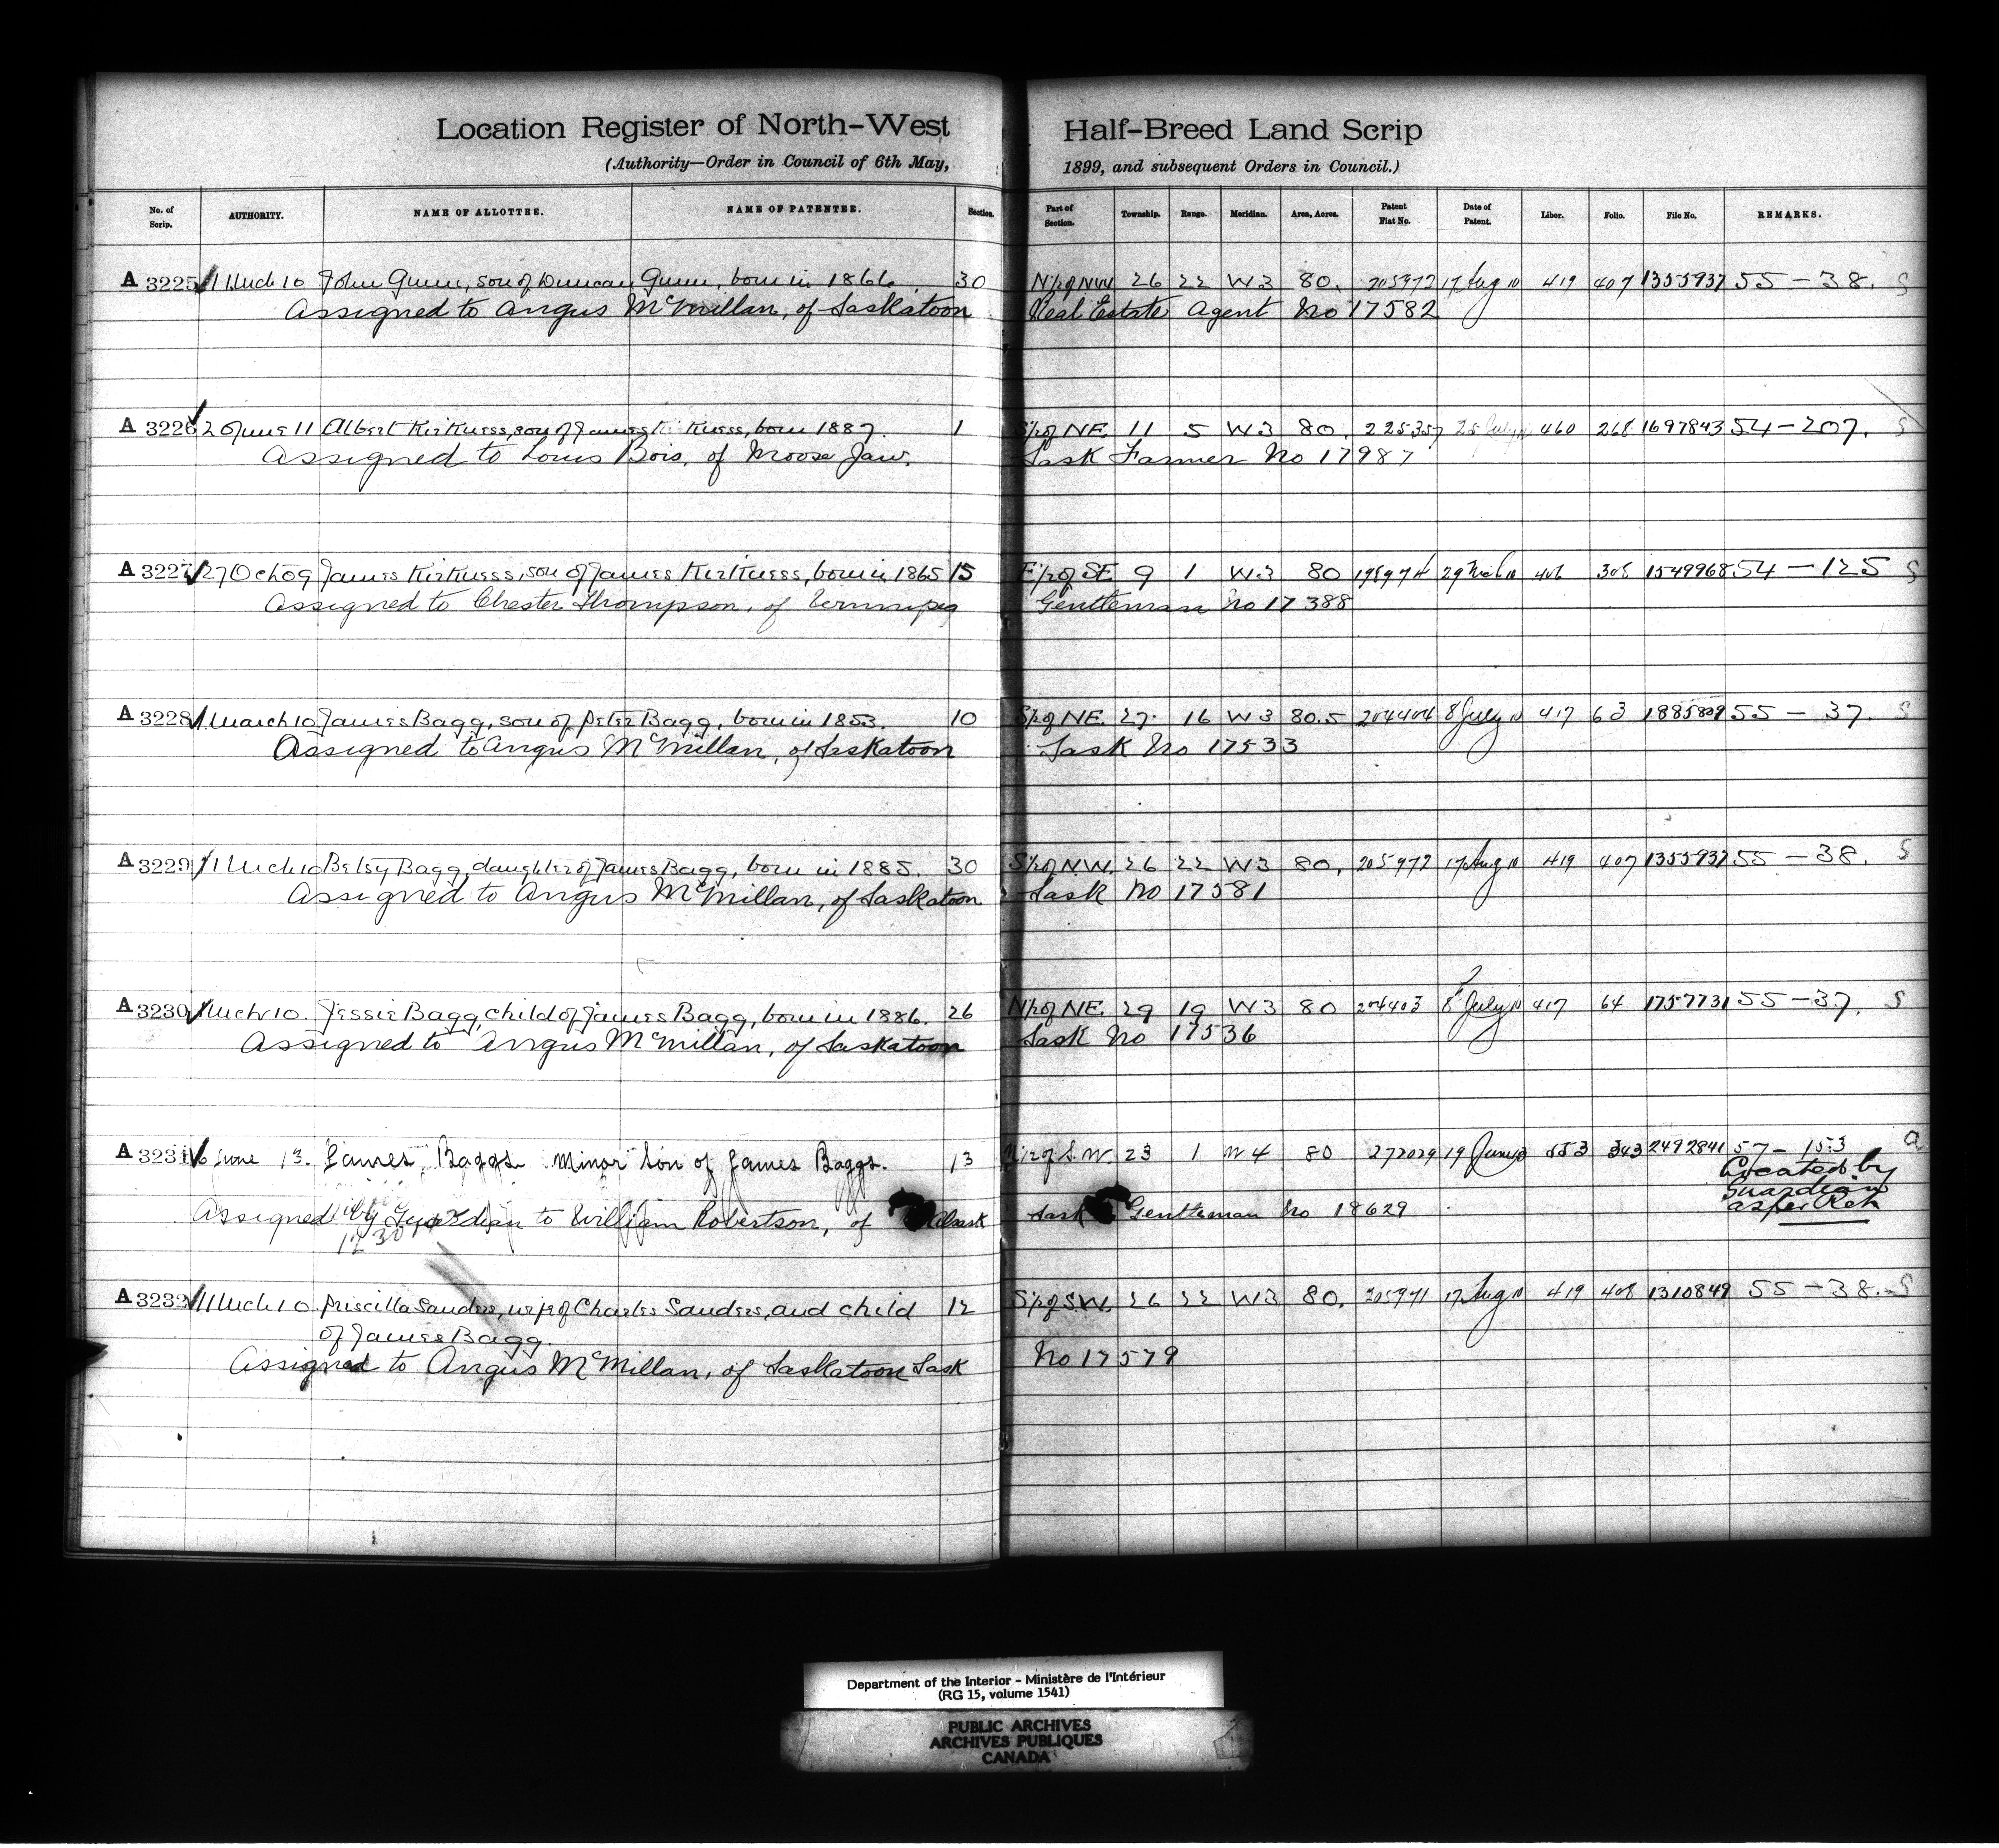 Location Register of North-West Half-Breed Land Scrip
(Authority—Order in Council of 6th May, 1899, and subsequent Orders in Council.)
No. of Scrip. AUTHORITY. NAME OF ALLOTTEE. NAME OF PATENTEE. Section. Part of Section. Township. Range. Meridian. Area, Acres. Patent Fiat No. Date of Patent. Liber. Folio. File No. REMARKS.
A 3225 11 Mch 10 John Gunn, son of Duncan Gunn, born in 1866. 30 N½ of NW 26 22 W3 80. 205972 17 Aug 10 419 407 1355937 55 – 38. S
Assigned to Angus McMillan, of Saskatoon Real Estate Agent No 17582
A 3226 2 June 11 Albert Kirkness, son of James Kirkness, born 1887. 1 S½ of NE. 11 5 W3 80. 225357 25 July 460 268 1697843 54 – 207. S
Assigned to Louis Bois, of Moose Jaw, Sask Farmer No 17987
A 3227 27 Oct 09 James Kirkness, son of James Kirkness, born in 1865 15 E½ of SE 9 1 W3 80 198974 29 Mch 10 406 308 1549968 54 – 125 S
Assigned to Chester Thompson, of Winnipeg Gentleman No 17388
A 3228 1 March 10 James Bagg, son of Peter Bagg, born in 1853. 10 S½ of NE. 27 16 W3 80.5 204404 8 July 10 417 63 1885809 55 – 37. S
Assigned to Angus McMillan, of Saskatoon Sask No 17533
A 3229 11 Mch 10 Betsy Bagg, daughter of James Bagg, born in 1885. 30 S½ of NW. 26 22 W3 80. 205972 17 Aug 10 419 407 1355937 55 – 38. S
Assigned to Angus McMillan, of Saskatoon Sask No 17581
A 3230 1 Mch 10. Jessie Bagg, child of James Bagg, born in 1886. 26 N½ of NE. 29 19 W3 80 204403 8 July 10 417 64 1757731 55 – 37. S
Assigned to Angus McMillan, of Saskatoon Sask No 17536
A 3231 6 June 13. James Baggs minor son of James Baggs. 13 N½ of S.W. 23 1 W4 80 272029 19 June 13 553 343 2492841 57 – 153 a
Located by
Guardian
as per Act
Assigned by Guardian to William Robertson, of Alsask Sask Gentleman No 18629
A 3232 11 Mch 10. Priscilla Sanders, wife of Charles Sanders, and child 12 S½ of S.W. 26 22 W3 80. 205971 17 Aug 10 419 408 1310849 55 – 38. S
of James Bagg.
Assigned to Angus McMillan, of Saskatoon Sask No 17579
Department of the Interior - Ministère de l'Intérieur
(RG 15, volume 1541)
PUBLIC ARCHIVES
ARCHIVES PUBLIQUES
CANADA